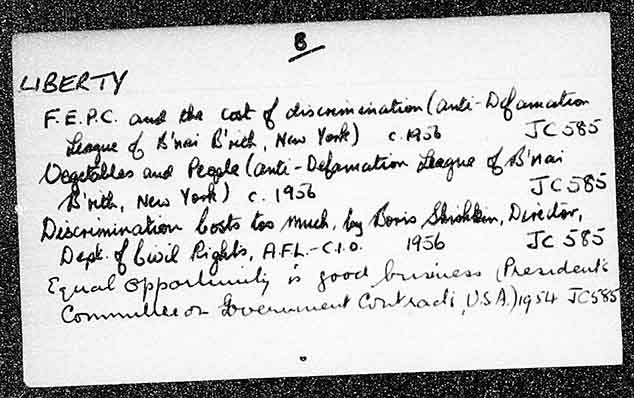 B
LIBERTY
F.E.P.C. and the cost of discrimination (Anti-Defamation
League of B'nai B'rith, New York) c. 1956 JC 585
Vegetables and People (Anti-Defamation League of B'nai
B'rith, New York) c. 1956 JC 585
Discrimination Costs too Much, by Boris Shishkin, Director,
Dept. of Civil Rights, A.F.L.-C.I.O. 1956 JC 585
Equal opportunity is good business (President's
Committee on Government Contracts, U.S.A.) 1954 JC585